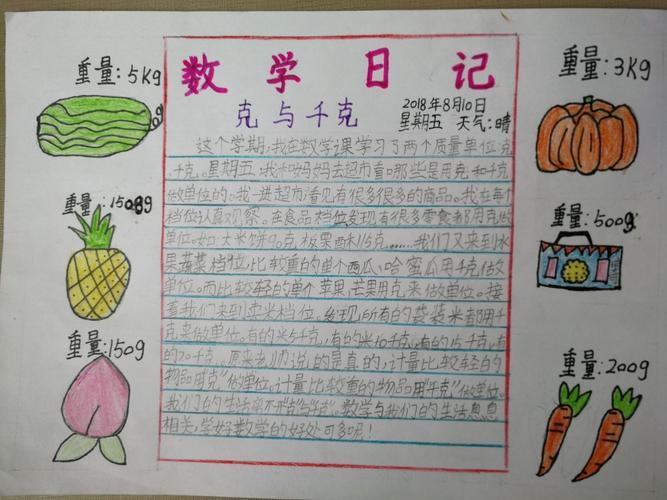 数学日记
克与千克
2018年8月10日
星期五 天气:晴
这个学期,我在数学课学习了两个质量单位克
,千克。星期五,我和妈妈去超市看。那些是用克和千克
做单位的。我一进超市,看见有很多很多的商品。我在每个
档位认真观察。在食品档位发现有很多零食都用克做
单位。如:大米饼90克,板果酥115克……我们又来到水
果蔬菜档位,比较重的单个西瓜、哈蜜瓜用千克做
单位。而比较轻的单个苹果,芒果用克来做单位。接
着我们来到卖米档位。发现所有的袋装米都用千
克来做单位。有的米5千克,有的米10千克,有的15千克,有
的20千克。原来老师说的是真的,计量比较轻的
物品用"克"做单位。计量比较重的物品用"千克"做单位。
我们的生活离不开"克"与"千克"。数学与我们的生活息息
相关,学好数学的好处可多呢!
重量:5Kg
重量:1508g
重量:150g
重量:3Kg
重量:500g
重量:200g